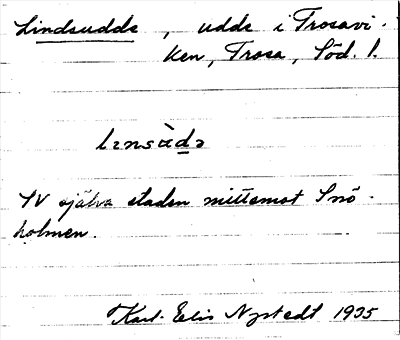 Lindsudde, udde i Trosavi-
ken, Trosa, Söd. l.
lɪnsùdə
SV själva staden mittemot Snö-
holmen.
Karl-Elis Nystedt 1935